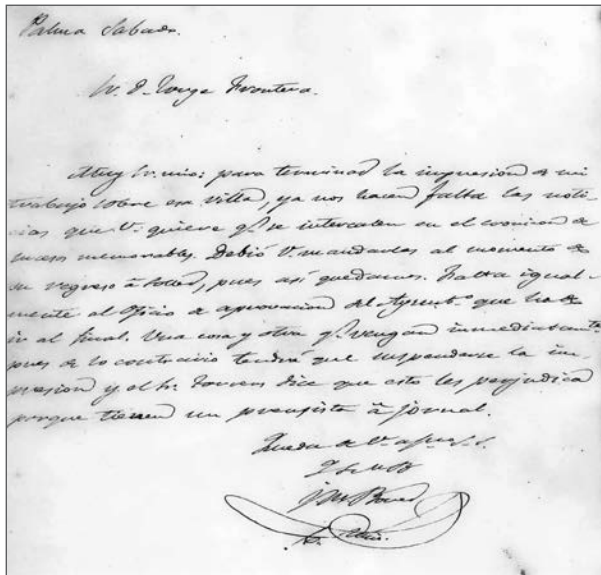 Palma Sabado.
Sr. D. Jorge Frontera.
Muy Sr. mio: para terminar la impresion de mi
trabajo sobre esa villa, ya nos hacen falta las noti-
cias que V. quiere q.e se intercalen en el cronicon de
sucesos memorables. Debió V. mandarlas al momento de
su regreso á Soller, pues asi quedamos. Falta igual-
mente el Oficio de aprovacion del Ayunt.o que ha de
ir al final. Una cosa y otra q.e vengan inmediatam.te
pues de lo contrario tendrá que suspenderse la im-
presion y el Sr. dice que esto les perjudica
porque tienen un prensista á jornal.
Queda de V. af.mo S.S.
Q S M B
J M Bover